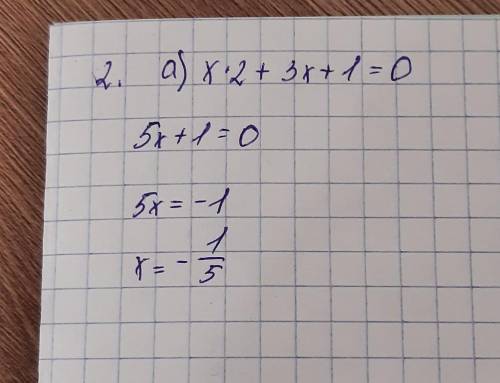 2. a) x·2 + 3x + 1 = 0
5x + 1 = 0
5x = -1
x = - 1/5